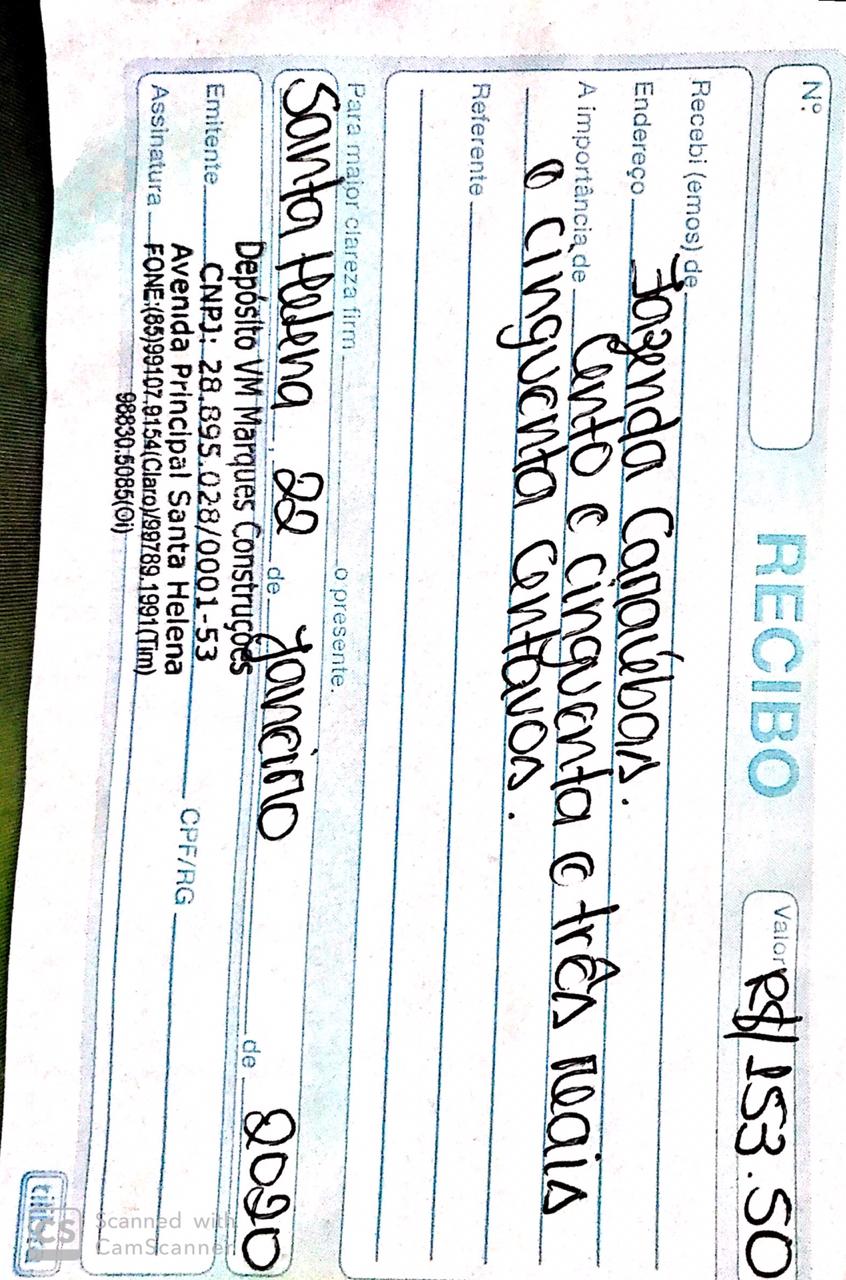 Nº
RECIBO
Valor R$ 153.50
Recebi (emos) de
Endereço Fazenda Carnaúbas.
A importância de Cento e cinquenta e três reais
e cinquenta centavos.
Referente
Para maior clareza firm o presente.
Santa Helena, 22 de Janeiro de 2020
Depósito VM Marques Construções
Emitente CNPJ: 28.895.028/0001-53 CPF/RG
Avenida Principal Santa Helena
Assinatura FONE:(85)99107.9154(Claro)/99789.1991(Tim)
98830.5085(Oi)
tilibra
CS Scanned with
CamScanner